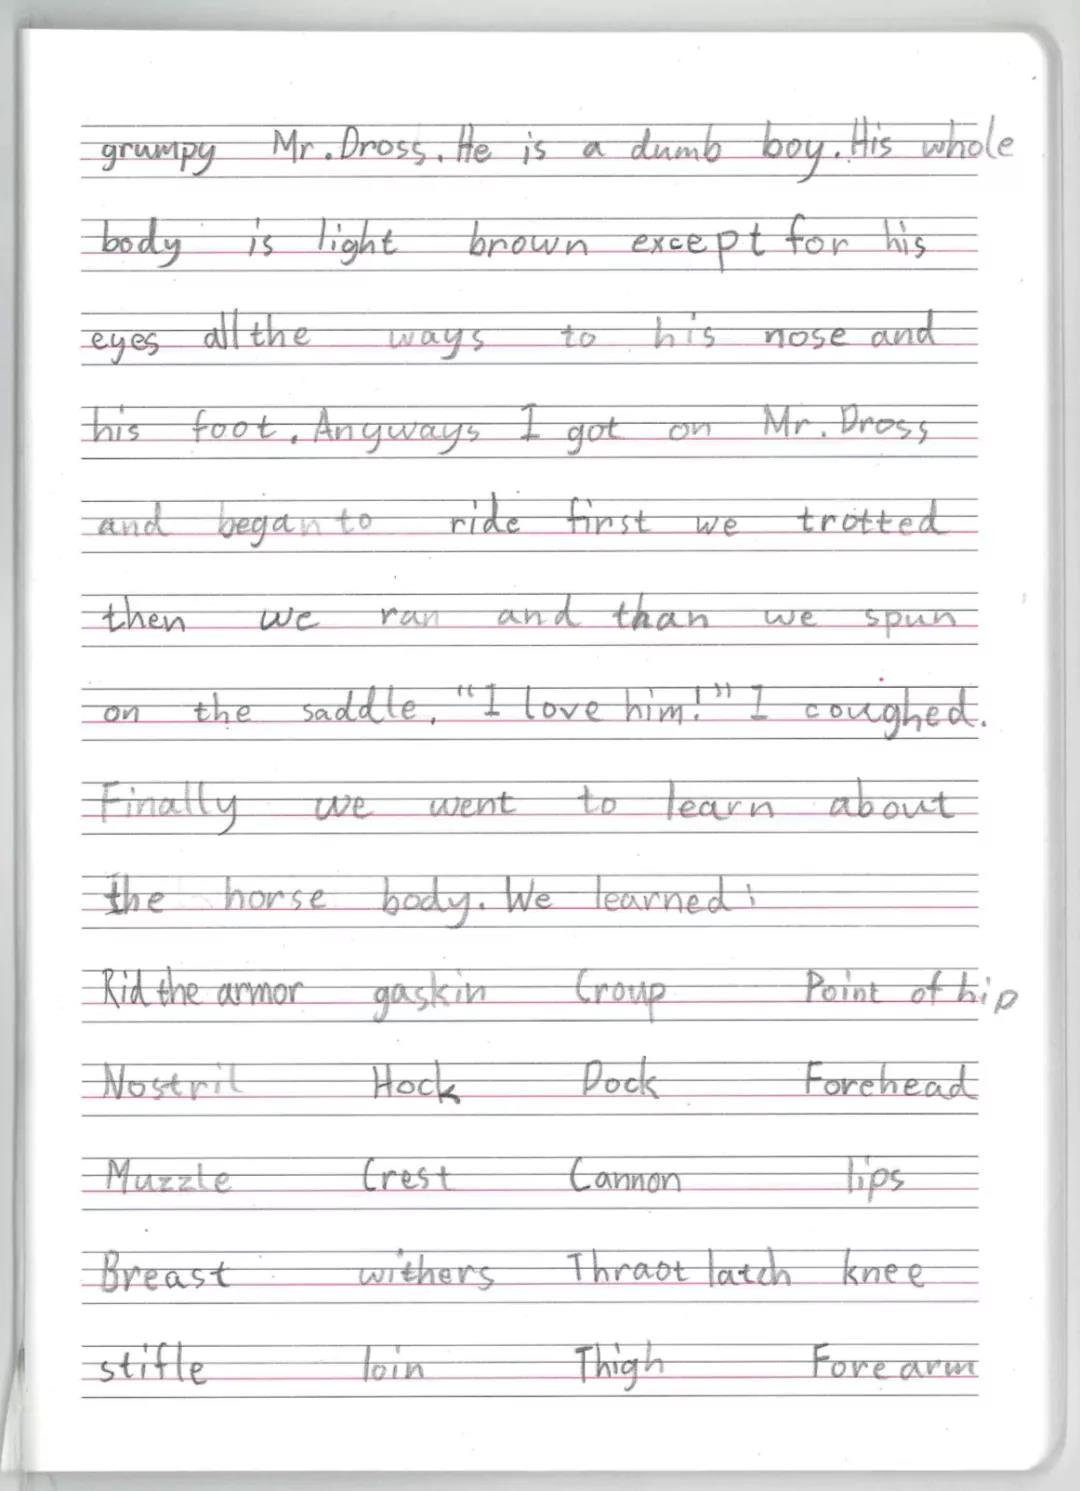 grumpy Mr. Dross. He is a dumb boy. His whole
body is light brown except for his
eyes all the ways to his nose and
his foot. Anyways I got on Mr. Dross
and began to ride first we trotted
then we ran and than we spun
on the saddle. "I love him!" I coughed.
Finally we went to learn about
the horse body. We learned:
Rid the armor gaskin Croup Point of hip
Nostril Hock Dock Forehead
Muzzle Crest Cannon lips
Breast withers Thraot latch knee
stifle loin Thigh Fore arm